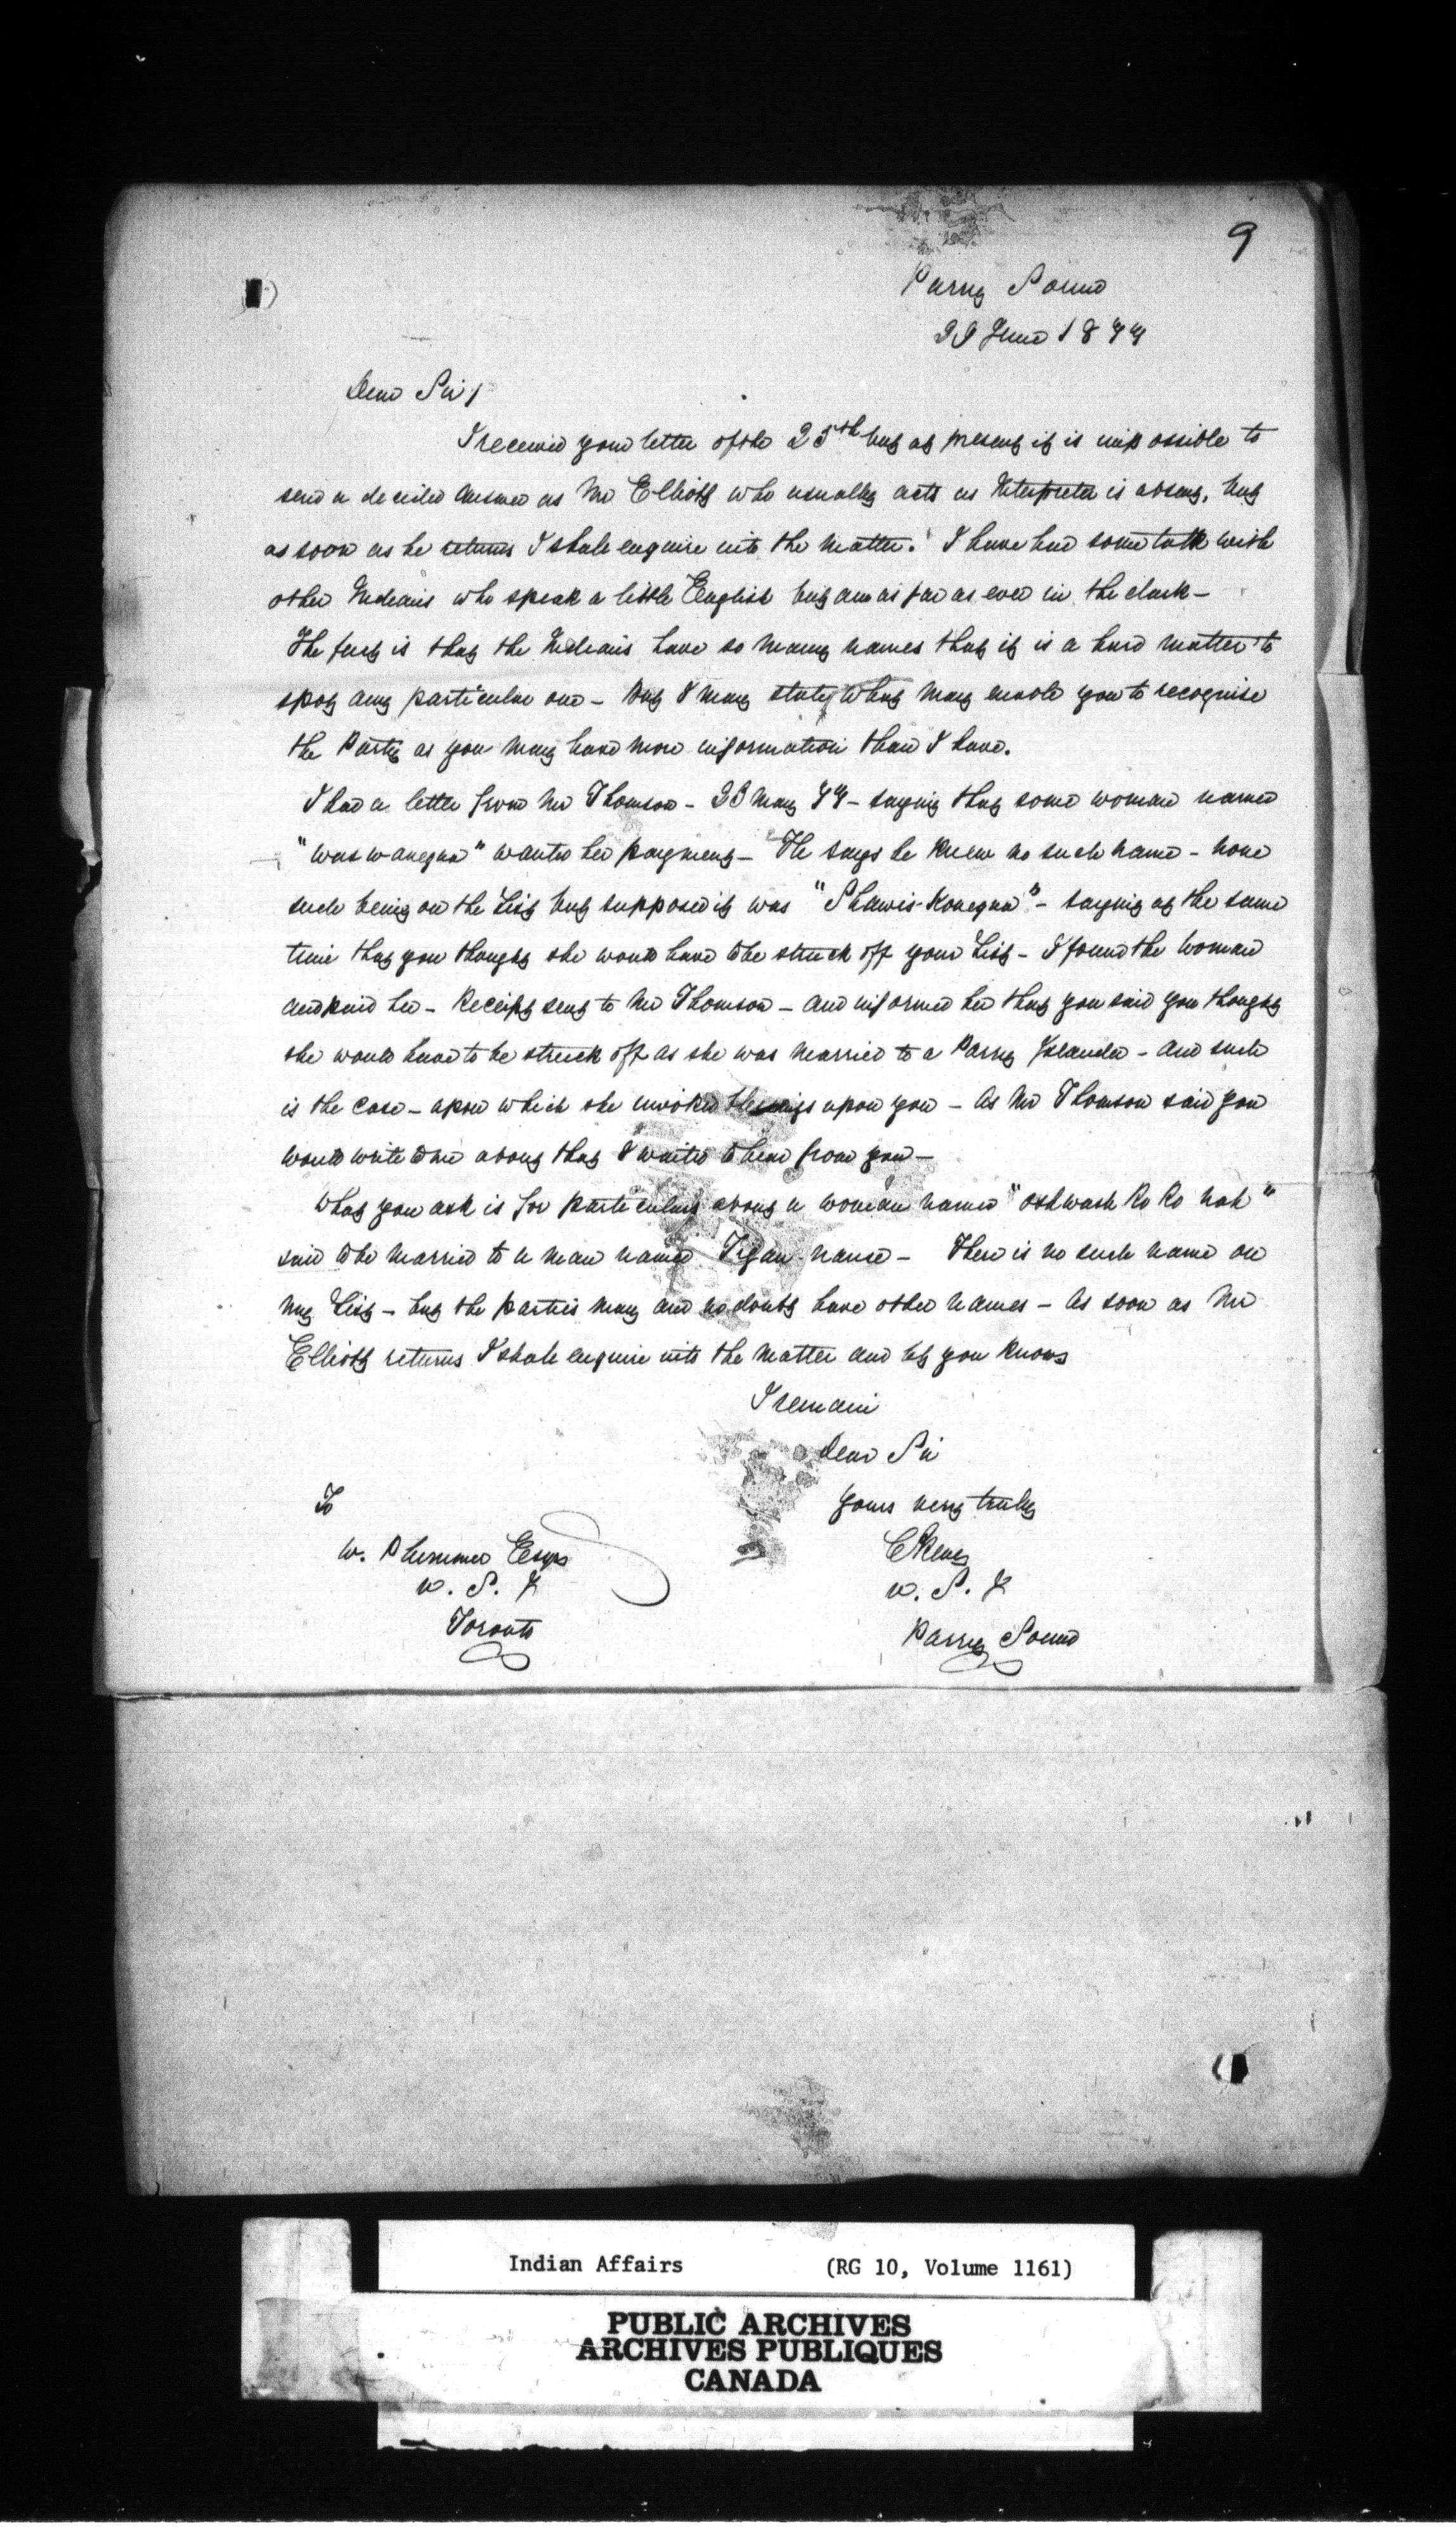 9
Parry Sound
29 June 1877
Dear Sir/
I received your letter of the 25th but at present it is impossible to
send a decided answer as Mr Elliott who usually acts as Interpreter is absent, but
as soon as he returns I shall enquire into the matter. I have had some talk with
other Indians who speak a little English but am as far as ever in the dark –
The fact is that the Indians have so many names that it is a hard matter to
spot any particular one – but I may state what may enable you to recognise
the Party as you may have more information than I have.
I had a letter from Mr Thomson – 23 May 77 – saying that some woman named
"Waswanequa" wanted her payment – He says he knew no such name – none
such being on the List but supposed it was "Shawis-Konequa" – saying at the same
time that you thought she would have to be struck off your List – I found the woman
and paid her – Receipt sent to Mr Thomson – and informed her that you said you thought
she would have to be struck off as she was married to a Parry Islander – and such
is the case – upon which she invoked blessings upon you – As Mr Thomson said you
would write to me about that I waited to hear from you –
What you ask is for particulars about a woman named "Oshwash Ko Ko nah"
said to be married to a man named – There is no such name on
my List – but the parties may and no doubt have other names – As soon as Mr
Elliott returns I shall enquire into the matter and let you know
I remain
Dear Sir
To
Yours very truly
W. Plummer Esqr
C Skene
V. S. I
V. S. I
Toronto
Parry Sound
Indian Affairs (RG 10, Volume 1161)
PUBLIC ARCHIVES
ARCHIVES PUBLIQUES
CANADA